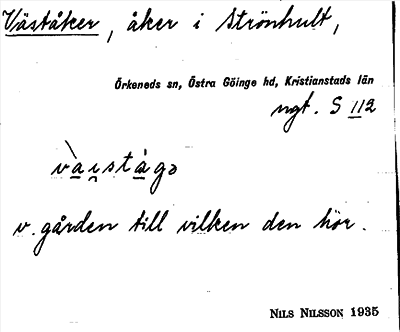 Väståker, åker i Strönhult,
Örkeneds sn, Östra Göinge hd, Kristianstads län
ngt. S 112
v. gården till vilken den hör.
NILS NILSSON 1935